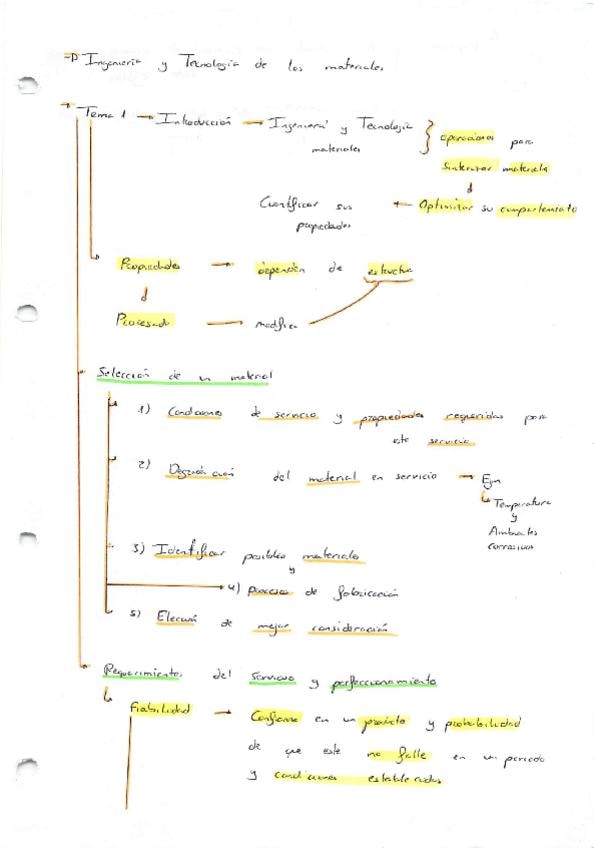 Ingeniería y Tecnología de los materiales
Tema 1 → Introducción → Ingeniería y Tecnología } operaciones para
materiales
sintetizar materiales
Cuantificar sus ← Optimizar su comportamiento
propiedades
Propiedades → dependen de estructura
Procesado → modifica
Selección de un material
1) Condiciones de servicio y propiedades requeridas para
este servicio
2) Degradación del material en servicio → Ejm
Temperatura
y
Ambientes
corrosivos
3) Identificar posibles materiales
y
4) proceso de fabricación
5) Elección de mejor consideración
Requerimientos del servicio y perfeccionamiento
fiabilidad → Confianza en un producto y probabilidad
de que este no falle en un periodo
y condiciones establecidas